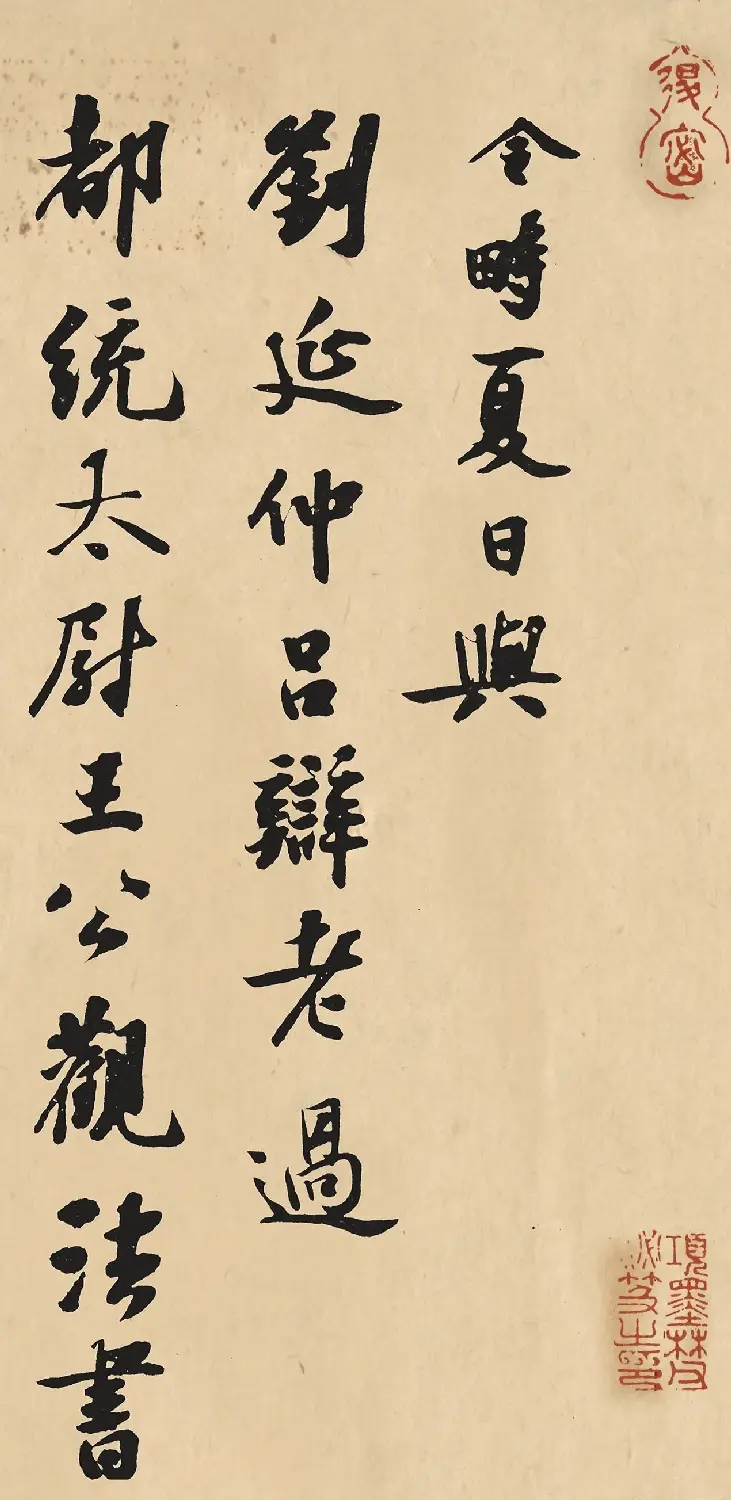 退密
令畤夏日與
劉延仲呂辯老過
都統太尉王公觀法書
項墨林父
祕笈之印